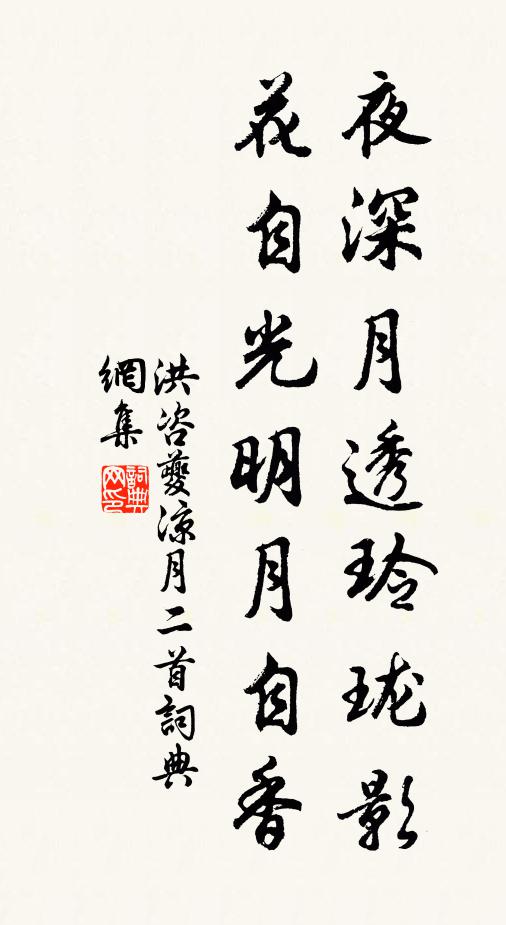 夜深月透玲珑影
花自光明月自香
洪咨夔涼月二首詞典
網集
詞典
网印